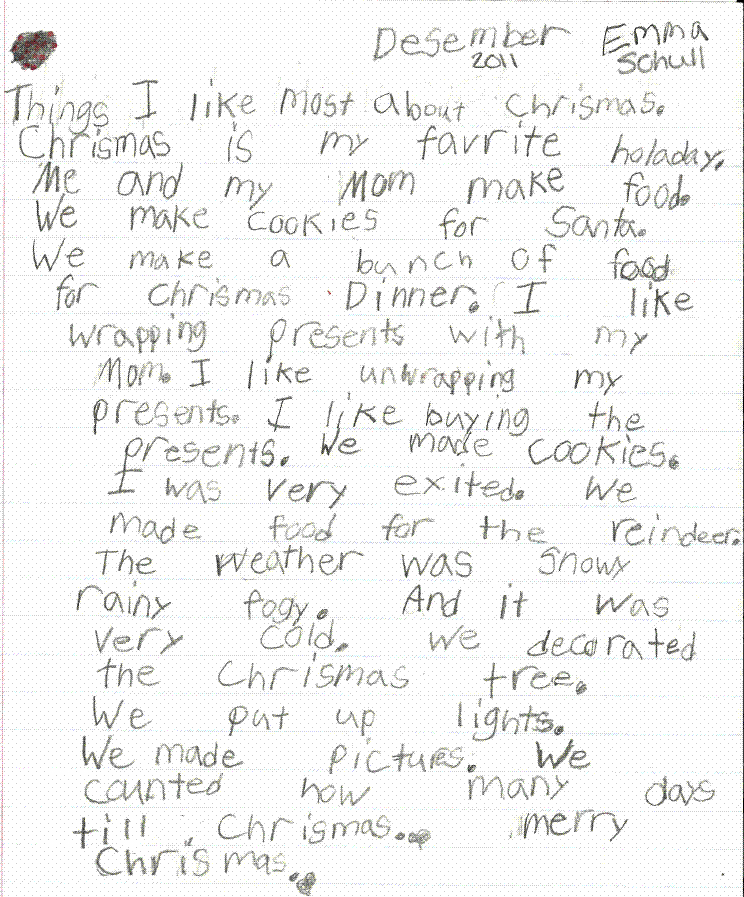 Desember Emma
2011 Schull
Things I like most about Chrismas.
Chrismas is my favrite holaday.
Me and my Mom make food.
We make cookies for Santa.
We make a bunch of food
for chrismas Dinner. I like
wrapping presents with my
Mom. I like unwrapping my
presents. I like buying the
presents. We made cookies.
I was very exited. We
made food for the reindeer.
The weather was snowy
rainy fogy. And it was
very cold. We decorated
the Chrismas tree.
We put up lights.
We made pictures. We
counted how many days
till Chrismas. merry
Chrismas.